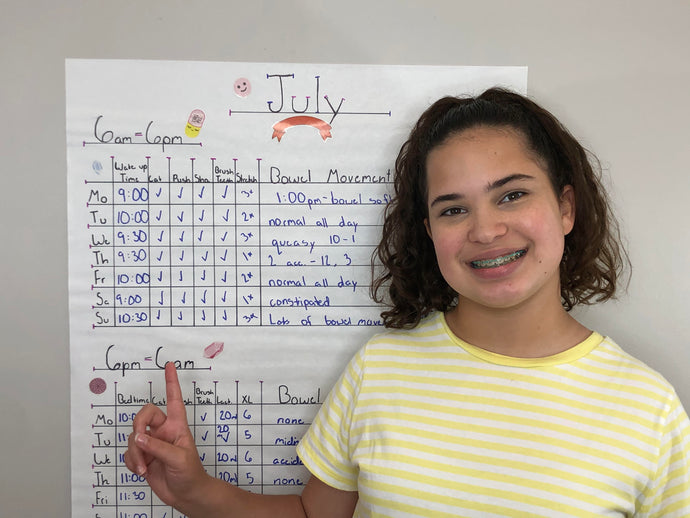 July
6am - 6pm
Wake up Time Eat Push Brush Teeth Stretch Bowel Movement
Mo 9:00 ✓ ✓ ✓ ✓ 3x 1:00pm - bowel
Tu 10:00 ✓ ✓ ✓ ✓ 2x normal all day
We 9:30 ✓ ✓ ✓ ✓ 3x queasy 10-1
Th 9:30 ✓ ✓ ✓ ✓ 1x 2 acc. - 12, 3
Fr 10:00 ✓ ✓ ✓ ✓ 2x normal all day
Sa 9:00 ✓ ✓ ✓ ✓ 1x constipated
Su 10:30 ✓ ✓ ✓ ✓ 3x Lots of bowel
6pm - 6am
Bedtime Brush Teeth XL Bowel
Mo ✓ 20 6 none
Tu ✓ 20 5
We ✓ 20 6
Th 11:00 ✓ 20 5 none
Fri 11:30
11:00